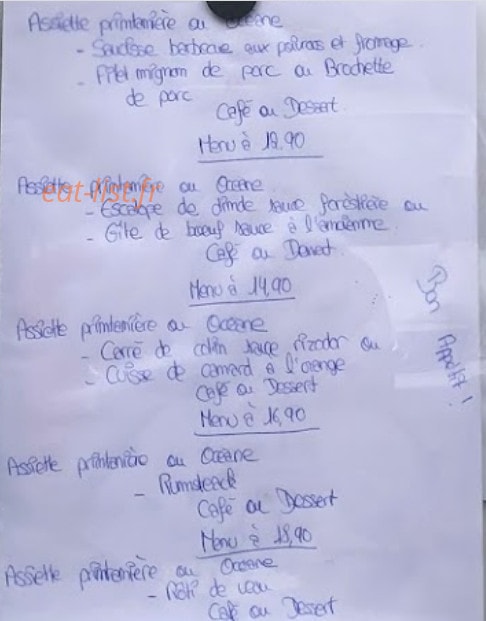 Assiette printanière ou Océane
- Saucisse barbecue aux poivrons et fromage.
- Filet mignon de porc ou Brochette
de porc
Café ou Dessert
Menu à 12,90
Assiette printanière ou Océane
eat-list.fr
- Escalope de dinde sauce forèstière ou
- Gîte de boeuf sauce à l'ancienne
Café ou Dessert
Menu à 14,90
Bon Appétit !
Assiette printanière ou Océane
- Carré de colin sauce ou
- Cuisse de canard à l'orange
Café ou Dessert
Menu à 16,90
Assiette printanière ou Océane
- Rumsteack
Café ou Dessert
Menu à 18,90
Assiette printanière ou Océane
- Rôti de veau
Café ou Dessert